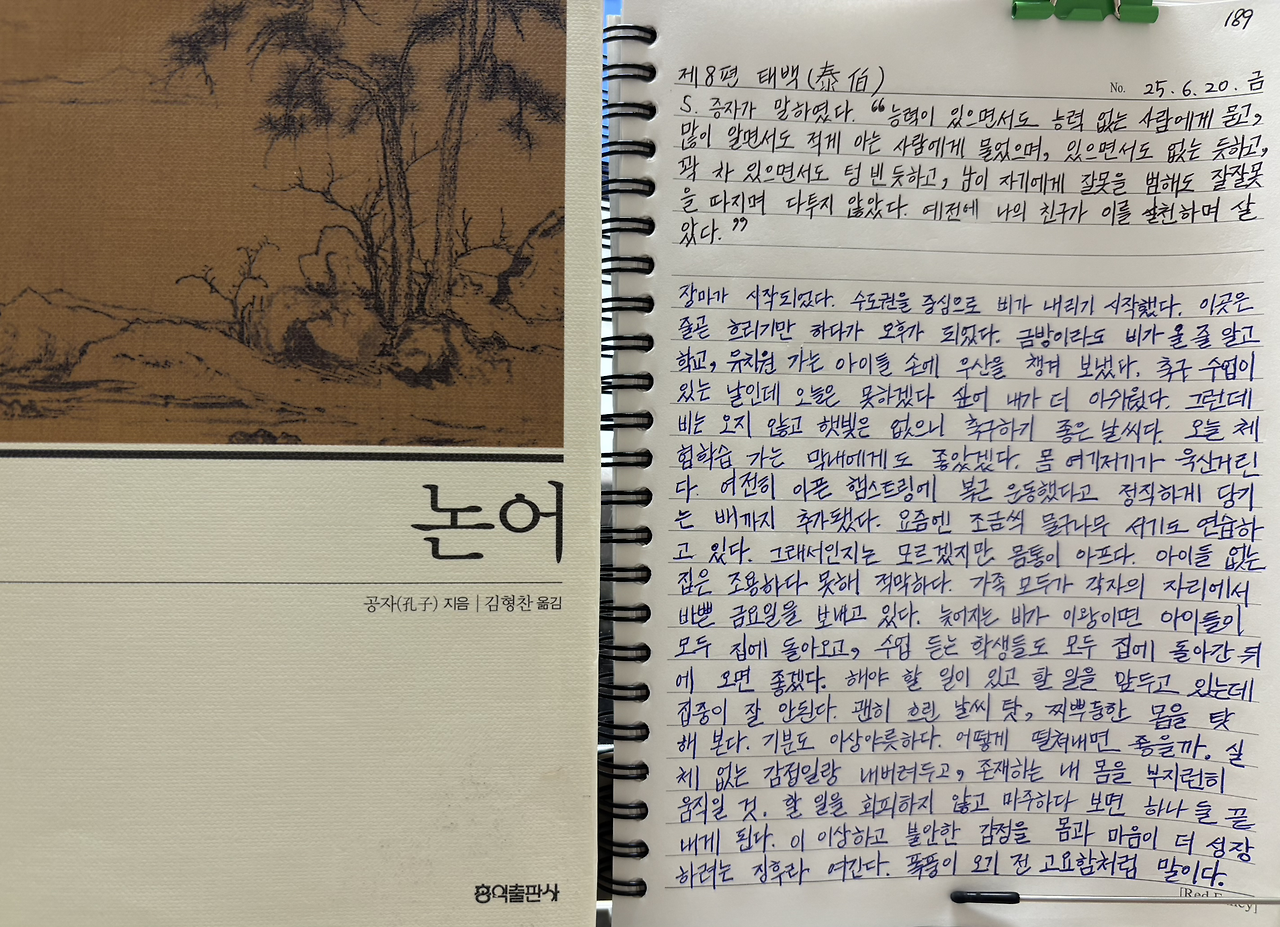 논어
공자(孔子) 지음 | 김형찬 옮김
홍익출판사
189
제8편 태백(泰伯)
No. 25.6.20.금
5. 증자가 말하였다. “능력이 있으면서도 능력 없는 사람에게 묻고,
많이 알면서도 적게 아는 사람에게 물었으며, 있으면서도 없는 듯하고,
꽉 차 있으면서도 텅 빈 듯하고, 남이 자기에게 잘못을 범해도 잘잘못
을 따지며 다투지 않았다. 예전에 나의 친구가 이를 실천하며 살
았다.”
장마가 시작되었다. 수도권을 중심으로 비가 내리기 시작했다. 이곳은
줄곧 흐리기만 하다가 오후가 되었다. 금방이라도 비가 올 줄 알고
학교, 유치원 가는 아이들 손에 우산을 챙겨 보냈다. 축구 수업이
있는 날인데 오늘은 못하겠다 싶어 내가 더 아쉬웠다. 그런데
비는 오지 않고 햇빛은 없으니 축구하기 좋은 날씨다. 오늘 체
험학습 가는 막내에게도 좋았겠다. 몸 여기저기가 욱신거린
다. 여전히 아픈 햄스트링에 복근 운동했다고 정직하게 당기
는 배까지 추가됐다. 요즘엔 조금씩 물구나무 서기도 연습하
고 있다. 그래서인지는 모르겠지만 몸통이 아프다. 아이들 없는
집은 조용하다 못해 적막하다. 가족 모두가 각자의 자리에서
바쁜 금요일을 보내고 있다. 늦어지는 비가 이왕이면 아이들이
모두 집에 돌아오고, 수업 듣는 학생들도 모두 집에 돌아간 뒤
에 오면 좋겠다. 해야 할 일이 있고 할 일을 앞두고 있는데
집중이 잘 안된다. 괜히 흐린 날씨 탓, 찌뿌둥한 몸을 탓
해 본다. 기분도 이상야릇하다. 어떻게 떨쳐내면 좋을까. 실
체 없는 감정일랑 내버려두고, 존재하는 내 몸을 부지런히
움직일 것. 할 일을 회피하지 않고 마주하다 보면 하나 둘 끝
내게 된다. 이 이상하고 불안한 감정을 몸과 마음이 더 성장
하려는 징후라 여긴다. 폭풍이 오기 전 고요함처럼 말이다.